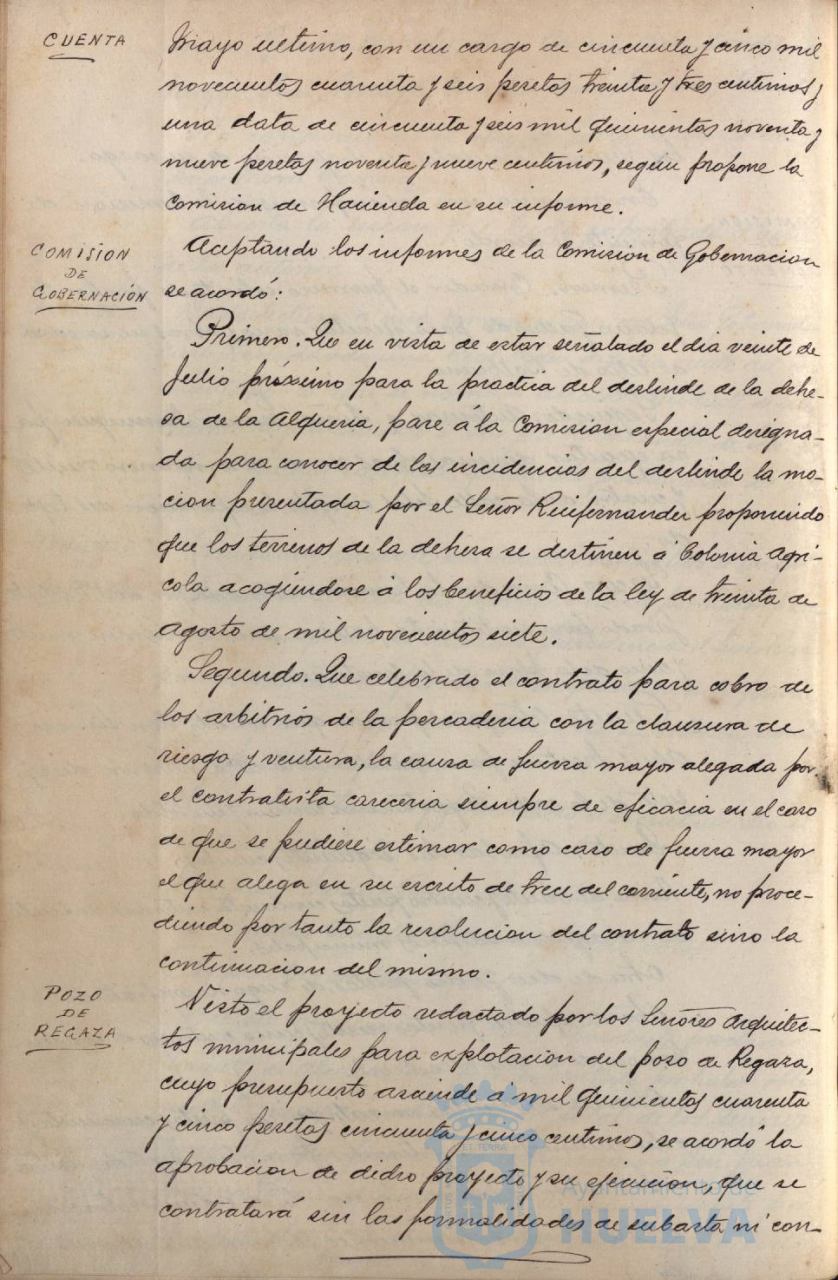 CUENTA
Mayo ultimo, con un cargo de cincuenta y cinco mil
novecientos cuarenta y seis pesetas treinta y tres centimos y
una data de cincuenta y seis mil quinientas noventa y
nueve pesetas noventa y nueve centimos, segun propone la
Comision de Hacienda en su informe.
COMISIÓN
DE
GOBERNACIÓN
Aceptando los informes de la Comision de Gobernacion
se acordó:
Primero. Que en vista de estar señalado el dia veinte de
Julio próximo para la practica del deslinde de la dehe-
sa de la Alqueria, pase á la Comision especial designa-
da para conocer de las incidencias del deslinde la mo-
cion presentada por el Señor Ruifernandez proponiendo
que los terrenos de la dehesa se destinen á Colonia Agri-
cola acogiendose á los beneficios de la ley de treinta de
agosto de mil novecientos siete.
Segundo. Que celebrado el contrato para cobro de
los arbitrios de la pescaderia con la clausura de
riesgo y ventura, la causa de fuerza mayor alegada por
el contratista careceria siempre de eficacia en el caso
de que se pudiese estimar como caso de fuerza mayor
el que alega en su escrito de trece del corriente, no proce-
diendo por tanto la resolucion del contrato sino la
continuacion del mismo.
POZO
DE
REGAZA
Visto el proyecto redactado por los Señores Arquitec-
tos municipales para explotacion del pozo de Regaza,
cuyo presupuesto asciende á mil quinientas cuarenta
y cinco pesetas cincuenta y cinco centimos, se acordó la
aprobacion de dicho proyecto y su ejecucion, que se
contratará sin las formalidades de subasta ni con-
Ayuntamiento de
HUELVA